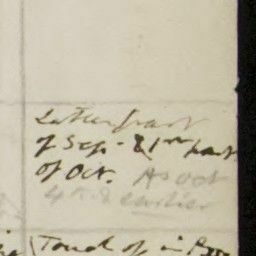 Latter part
of Sep - & 1st part
of Oct. As oct
4th & earlier
Touch of in